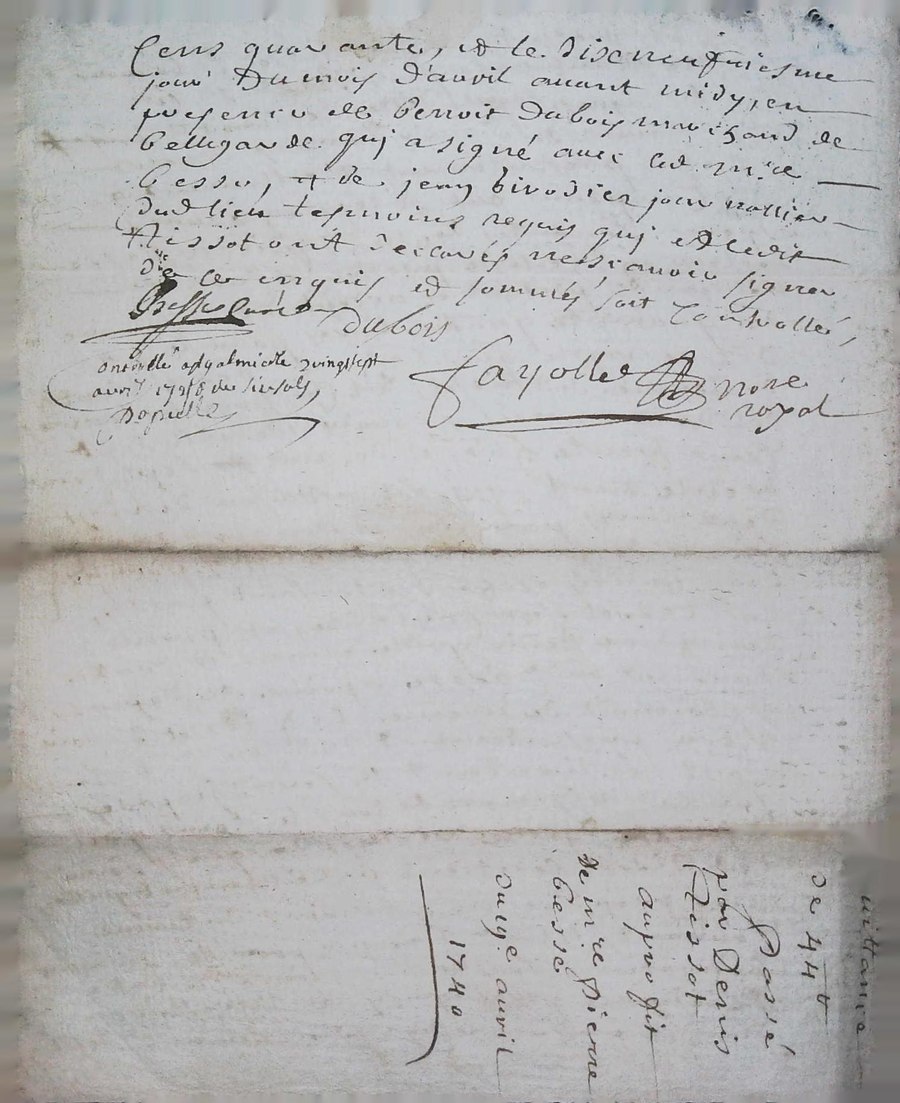 Cens quarante, et le dixneufviesme
jour du mois d'avril avant midy, en
presence de benoit dubois marchand de
bellegarde qui a signé avec led. mre
besse, et de jean birodier journallier
dud lieu tesmoins requis qui et ledit
tissot ont declarés ne sçavoir signer
de ce enquis et sommés soit controllé,
Besse curé
dubois
fayolle nore
royal
Controllé a st galmier le vingt sept
avril 1740 six sols,
de 44lt
passé
par Denis
tissot
au proffit
de mre pierre
besse
du 19e avril
1740